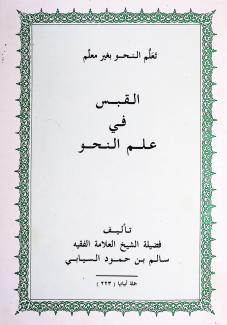 تعلم النحو بغير معلم
القبس
في
علم النحو
تأليف
فضيلة الشيخ العلامة الفقيه
سالم بن حمود السيابي
جملة أبياتها ( ٢٢٣ )